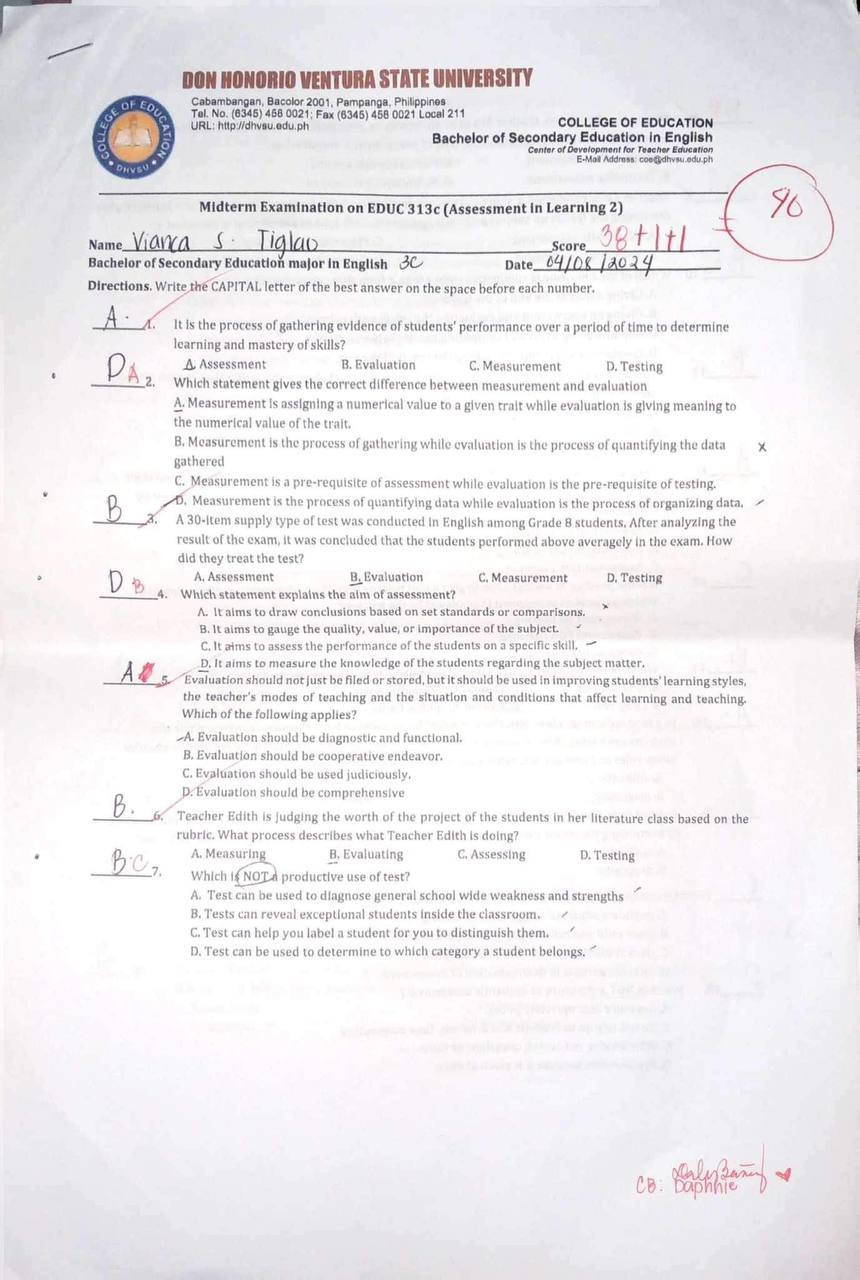 DON HONORIO VENTURA STATE UNIVERSITY
Cabambangan, Bacolor 2001, Pampanga, Philippines
Tel. No. (6345) 458 0021; Fax (6345) 458 0021 Local 211
URL: http://dhvsu.edu.ph
COLLEGE OF EDUCATION
DHVSU
COLLEGE OF EDUCATION
Bachelor of Secondary Education in English
Center of Development for Teacher Education
E-Mail Address: coe@dhvsu.edu.ph
90
Midterm Examination on EDUC 313c (Assessment in Learning 2)
Name Vianca S. Tiglao Score 38+1+1
Bachelor of Secondary Education major in English 3C Date 04/08/2024
Directions. Write the CAPITAL letter of the best answer on the space before each number.
A. 1. It is the process of gathering evidence of students' performance over a period of time to determine
learning and mastery of skills?
A. Assessment B. Evaluation C. Measurement D. Testing
D A 2. Which statement gives the correct difference between measurement and evaluation
A. Measurement is assigning a numerical value to a given trait while evaluation is giving meaning to
the numerical value of the trait.
B. Measurement is the process of gathering while evaluation is the process of quantifying the data
gathered
C. Measurement is a pre-requisite of assessment while evaluation is the pre-requisite of testing.
D. Measurement is the process of quantifying data while evaluation is the process of organizing data.
B 3. A 30-item supply type of test was conducted in English among Grade 8 students. After analyzing the
result of the exam, it was concluded that the students performed above averagely in the exam. How
did they treat the test?
A. Assessment B. Evaluation C. Measurement D. Testing
D B 4. Which statement explains the aim of assessment?
A. It aims to draw conclusions based on set standards or comparisons.
B. It aims to gauge the quality, value, or importance of the subject.
C. It aims to assess the performance of the students on a specific skill.
D. It aims to measure the knowledge of the students regarding the subject matter.
A 5. Evaluation should not just be filed or stored, but it should be used in improving students' learning styles,
the teacher's modes of teaching and the situation and conditions that affect learning and teaching.
Which of the following applies?
A. Evaluation should be diagnostic and functional.
B. Evaluation should be cooperative endeavor.
C. Evaluation should be used judiciously.
D. Evaluation should be comprehensive
B. 6. Teacher Edith is judging the worth of the project of the students in her literature class based on the
rubric. What process describes what Teacher Edith is doing?
A. Measuring B. Evaluating C. Assessing D. Testing
B. C 7. Which is NOT a productive use of test?
A. Test can be used to diagnose general school wide weakness and strengths
B. Tests can reveal exceptional students inside the classroom.
C. Test can help you label a student for you to distinguish them.
D. Test can be used to determine to which category a student belongs.
CB: Daphnie